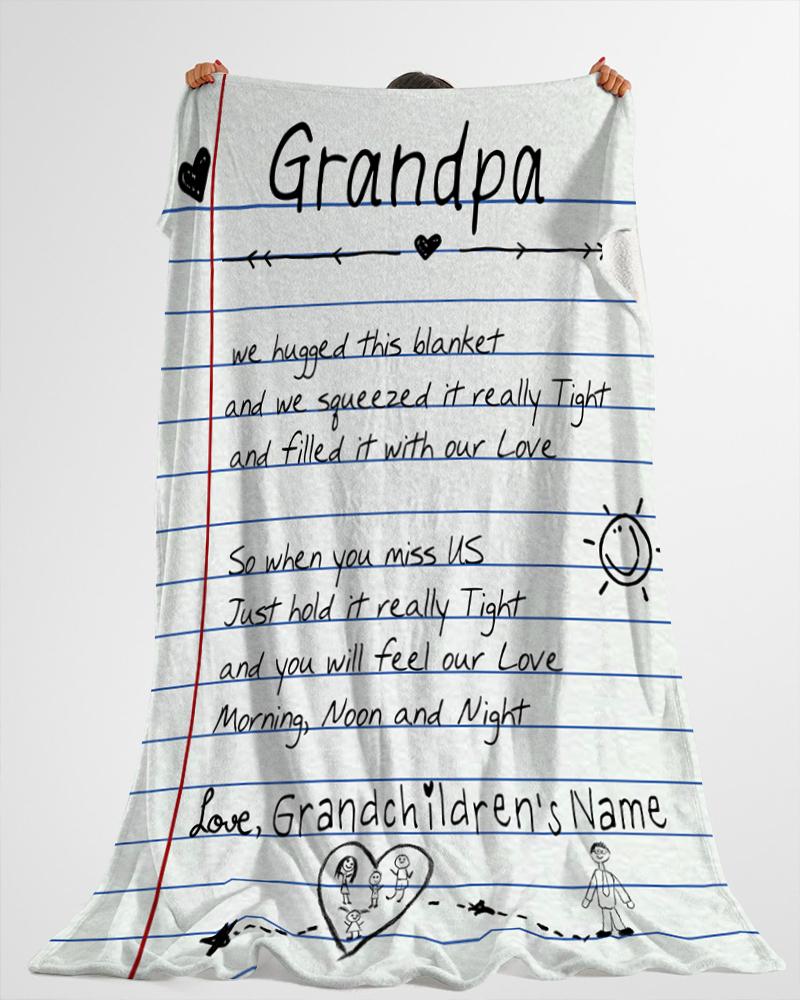 Grandpa
we hugged this blanket
and we squeezed it really Tight
and filled it with our Love
So when you miss US
Just hold it really Tight
and you will feel our Love
Morning, Noon and Night
Love, Grandchildren's Name